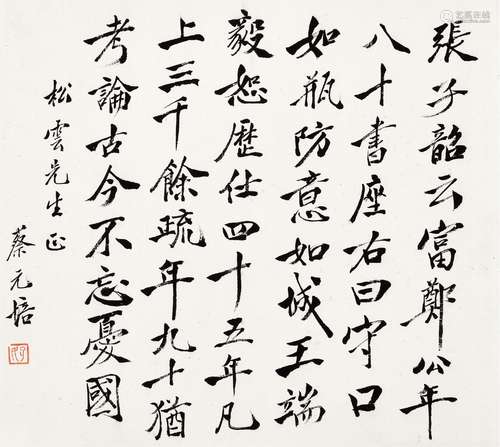 張子韶云富鄭公年
八十書座右曰守口
如瓶防意如城王端
毅恕歷仕四十五年凡
上三千餘疏年九十猶
考論古今不忘憂國
松雲先生正
蔡元培